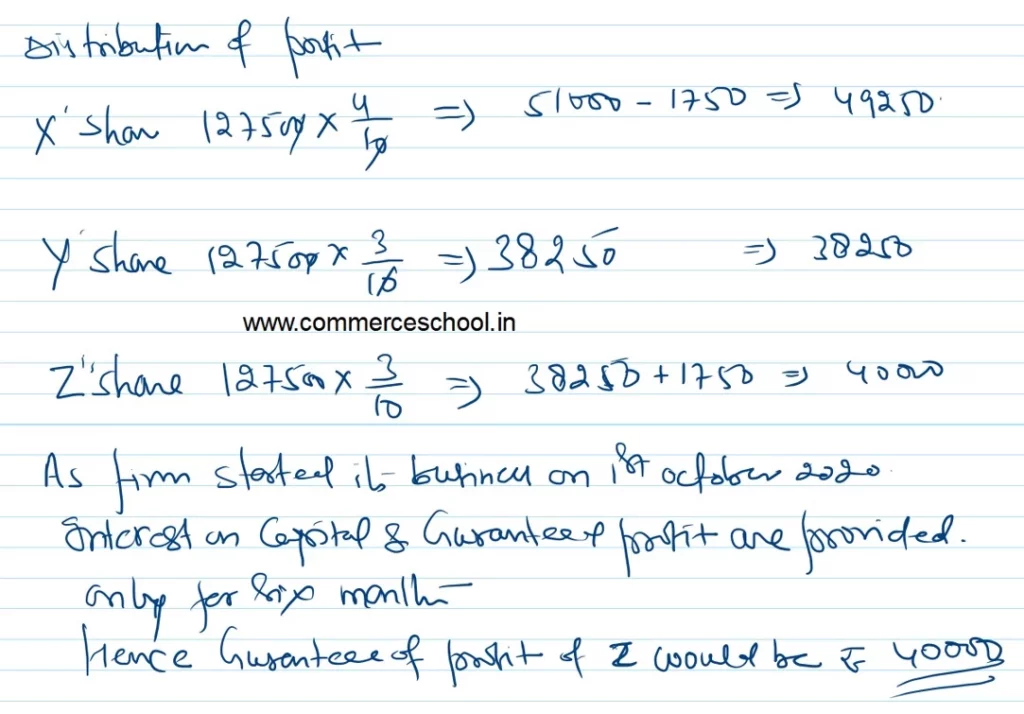 Distribution of profit
X' share 127500 × 4/10 => 51000 - 1750 => 49250.
Y' share 127500 × 3/10 => 38250 => 38250
www.commerceschool.in
Z's share 127500 × 3/10 => 38250 + 1750 => 40000
As firm started its business on 1st october 2020.
Interest on Capital & Guranteed profit are provided.
only for six months
Hence Gurantee of profit of Z would be ₹ 40000